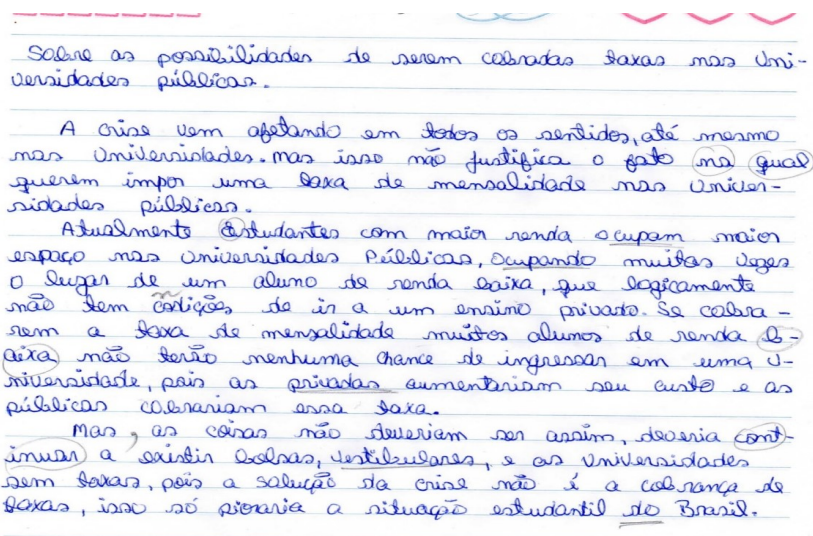 Sobre as possibilidades de serem cobradas taxas nas Uni-
versidades públicas.
A crise vem afetando em todos os sentidos, até mesmo
nas Universidades. mas isso não justifica o fato na qual
querem impor uma taxa de mensalidade nas Univer-
sidades públicas.
Atualmente Estudantes com maior renda ocupam maior
espaço nas Universidades Públicas, ocupando muitas vezes
o lugar de um aluno de renda baixa, que logicamente
não tem condições de ir a um ensino privado. Se cobra-
rem a taxa de mensalidade muitos alunos de renda b-
aixa não terão nenhuma chance de ingressar em uma U-
niversidade, pois as privadas aumentariam seu custo e as
públicas cobrariam essa taxa.
Mas, as coisas não deveriam ser assim, deveria cont-
inuar a existir bolsas, vestibulares, e as Universidades
sem taxas, pois a solução da crise não é a cobrança de
taxas, isso só pioraria a situação estudantil do Brasil.